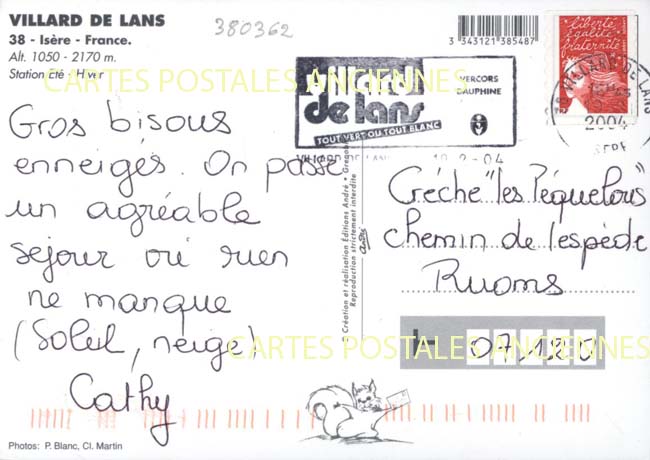 VILLARD DE LANS
38 - Isère - France.
Alt. 1050 - 2170 m.
Station Eté - Hiver
380362
3 343121 385487
liberté
égalité
fraternité
de lans
TOUT VERT OU TOUT BLANC
VERCORS
DAUPHINE
VILLARD DE LANS
2004
CARTES POSTALES ANCIENNES
Gros bisous
enneigés. On passe
un agréable
séjour où rien
ne manque
(Soleil, neige)
Cathy
© Création et réalisation Éditions André
Reproduction strictement interdite
Crèche "les Péquelous"
chemin de l'espède
Ruoms
CARTES POSTALES ANCIENNES
Photos: P. Blanc, Cl. Martin